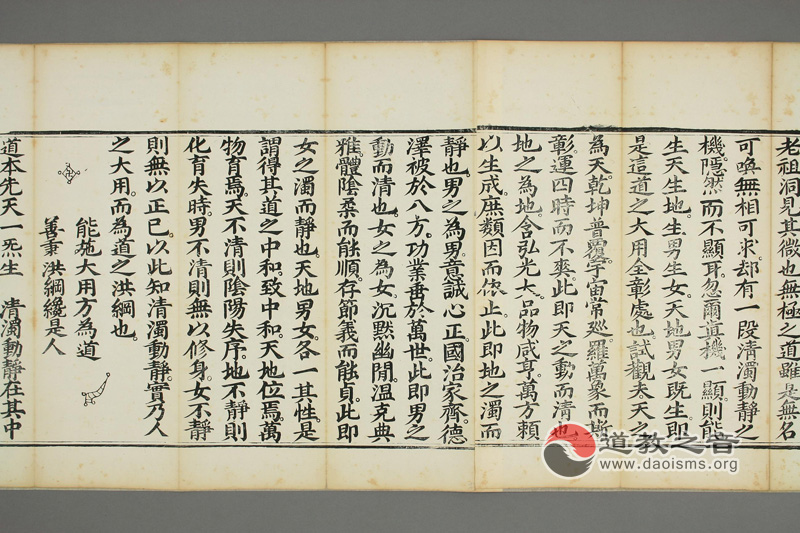 老祖洞見其微也無極之道雖是無名
可喚無相可求却有一段清濁動靜之
機。隱然而不顯耳。忽爾道機一顯。則能
生天生地。生男生女。天地男女既生。即
是這道之大用全彰處也。試觀夫天之
為天。乾坤普覆。宇宙常廵。羅萬象而斯
彰。運四時而不爽。此即天之動而清也。
地之為地。含弘光大。品物咸亨。萬方賴
以生成。庶類因而依止。此即地之濁而
靜也。男之為男。意誠心正。國治家齊。德
澤被於八方。功業垂於萬世。此即男之
動而清也。女之為女。沉默幽閒。溫克典
雅。體陰柔而能順。存節義而能貞。此即
女之濁而靜也。天地男女。各一其性。是
謂得其道之中和。致中和。天地位焉。萬
物育焉。天不清則陰陽失序。地不靜則
化育失時。男不清則無以修身。女不靜
則無以正己。以此知清濁動靜。實乃人
之大用。而為道之洪綱也。
能施大用方為道
善秉洪綱纔是人
道本先天一炁生 清濁動靜在其中
道教之音
www.daoisms.org